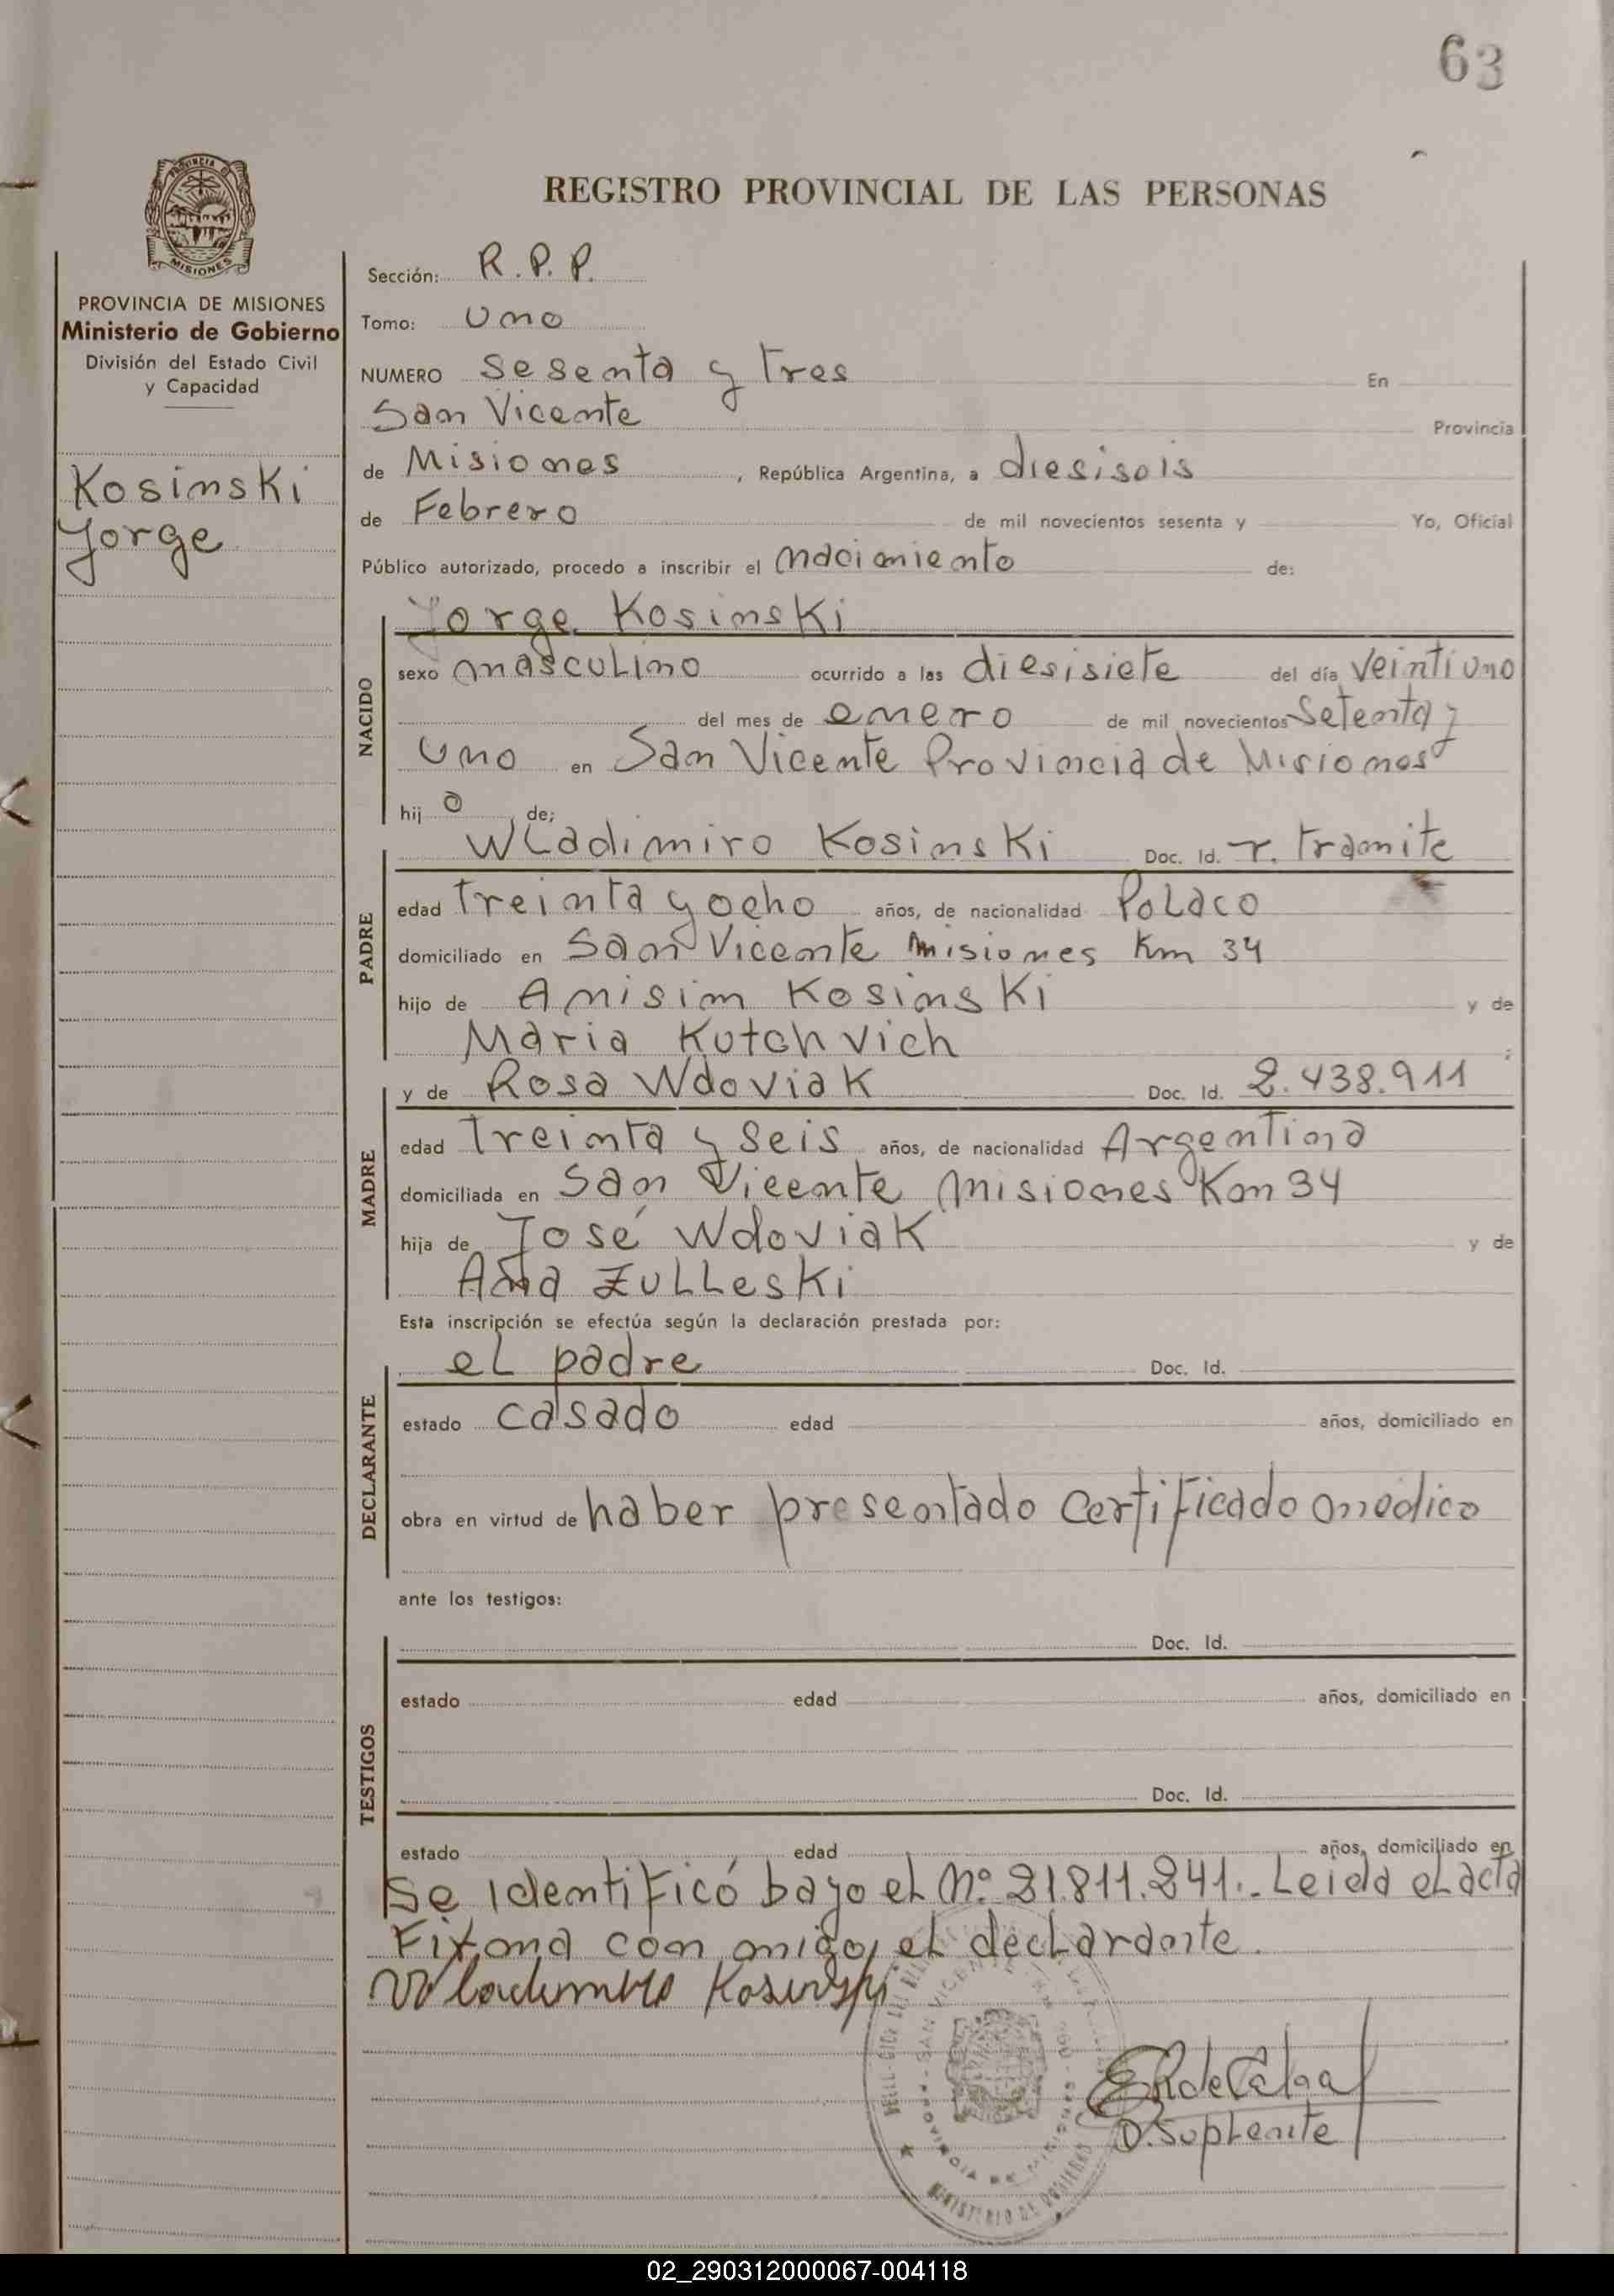 63
REGISTRO PROVINCIAL DE LAS PERSONAS
PROVINCIA
MISIONES
PROVINCIA DE MISIONES
Ministerio de Gobierno
División del Estado Civil
y Capacidad
Kosinski
Jorge
Sección: R.P.P.
Tomo: Uno
NUMERO sesenta y tres En
San Vicente Provincia
de Misiones, República Argentina, a diesiseis
de Febrero de mil novecientos sesenta y Yo, Oficial
Público autorizado, procedo a inscribir el nacimiento de:
Jorge Kosinski
NACIDO
sexo masculino ocurrido a las diesisiete del día veintiuno
del mes de enero de mil novecientos setenta y
uno en San Vicente Provincia de Misiones
hijo de;
Wladimiro Kosinski Doc. Id. r. tramite
PADRE
edad treinta y ocho años, de nacionalidad Polaco
domiciliado en San Vicente Misiones Km 34
hijo de Anisim Kosinski y de
Maria Kutchvich ;
y de Rosa Wdoviak Doc. Id. 2.438.911
MADRE
edad treinta y seis años, de nacionalidad Argentina
domiciliada en San Vicente Misiones Km 34
hija de José Wdoviak y de
Ana Zulleski
Esta inscripción se efectúa según la declaración prestada por:
el padre Doc. Id.
DECLARANTE
estado casado edad años, domiciliado en
obra en virtud de haber presentado certificado medico
ante los testigos:
Doc. Id.
TESTIGOS
estado edad años, domiciliado en
Doc. Id.
estado edad años, domiciliado en
Se identificó bajo el Nº 21.811.241.- Leida el acta
Firma con migo, el declarante.
Kosinski
SAN VICENTE
PROVINCIA DE MISIONES
MINISTERIO DE GOBIERNO
O. Suplente
02_290312000067-004118